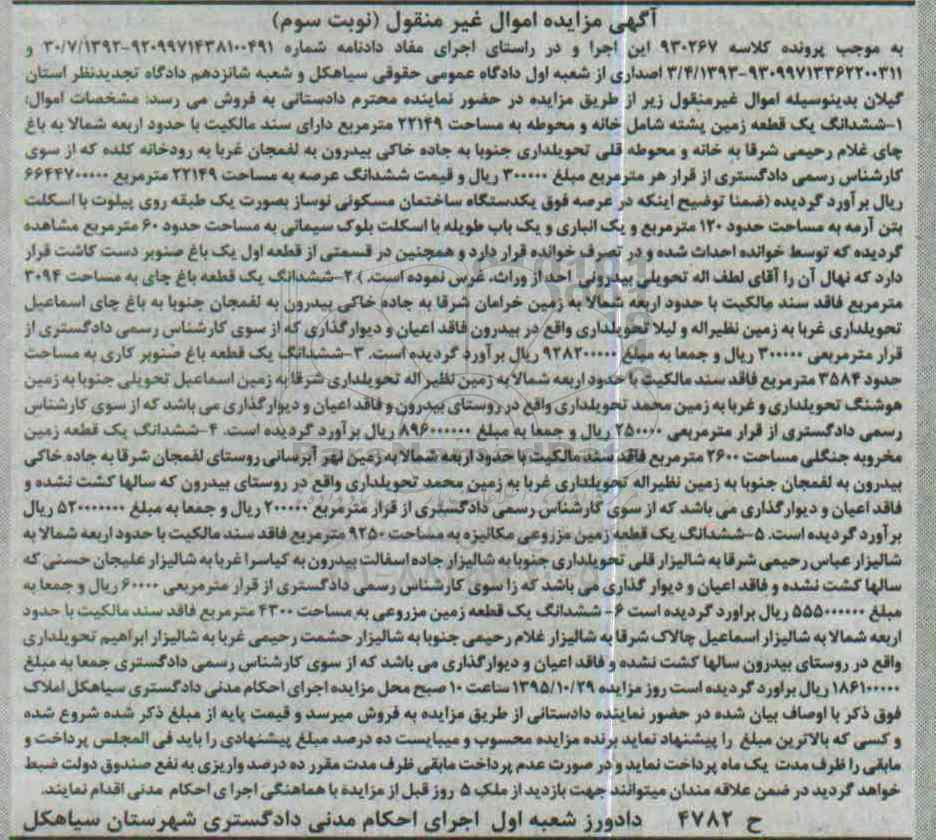 آگهی مزایده اموال غیر منقول (نوبت سوم)
به موجب پرونده کلاسه ۹۳۰۲۶۷ این اجرا و در راستای اجرای مفاد دادنامه شماره ۹۲۰۹۹۷۱۴۳۸۱۰۰۴۹۱-۳۰/۷/۱۳۹۲ و
۹۳۰۹۹۷۱۳۳۶۲۲۰۰۳۱۱-۳/۴/۱۳۹۳ اصداری از شعبه اول دادگاه عمومی حقوقی سیاهکل و شعبه شانزدهم دادگاه تجدیدنظر استان
گیلان بدینوسیله اموال غیرمنقول زیر از طریق مزایده در حضور نماینده محترم دادستانی به فروش می رسد: مشخصات اموال:
۱-ششدانگ یک قطعه زمین پشته شامل خانه و محوطه به مساحت ۲۲۱۴۹ مترمربع دارای سند مالکیت با حدود اربعه شمالا به باغ
چای غلام رحیمی شرقا به خانه و محوطه قلی تحویلداری جنوبا به جاده خاکی بیدرون به لفمجان غربا به رودخانه کلده که از سوی
کارشناس رسمی دادگستری از قرار هر مترمربع مبلغ ۳۰۰۰۰۰ ریال و قیمت ششدانگ عرصه به مساحت ۲۲۱۴۹ مترمربع ۶۶۴۴۷۰۰۰۰۰
ریال برآورد گردیده (ضمنا توضیح اینکه در عرصه فوق یکدستگاه ساختمان مسکونی نوساز بصورت یک طبقه روی پیلوت با اسکلت
بتن آرمه به مساحت حدود ۱۲۰ مترمربع و یک انباری و یک باب طویله با اسکلت بلوک سیمانی به مساحت حدود ۶۰ مترمربع مشاهده
گردیده که توسط خوانده احداث شده و در تصرف خوانده قرار دارد و همچنین در قسمتی از قطعه اول یک باغ صنوبر دست کاشت قرار
دارد که نهال آن را آقای لطف اله تحویلی بیدرونی احد از وراث، غرس نموده است.) ۲-ششدانگ یک قطعه باغ چای به مساحت ۳۰۹۴
مترمربع فاقد سند مالکیت با حدود اربعه شمالا به زمین خرامان شرقا به جاده خاکی بیدرون به لفمجان جنوبا به باغ چای اسماعیل
تحویلداری غربا به زمین نظیراله و لیلا تحویلداری واقع در بیدرون فاقد اعیان و دیوارگذاری که از سوی کارشناس رسمی دادگستری از
قرار مترمربعی ۳۰۰۰۰۰ ریال و جمعا به مبلغ ۹۲۸۲۰۰۰۰۰ ریال برآورد گردیده است. ۳-ششدانگ یک قطعه باغ صنوبر کاری به مساحت
حدود ۳۵۸۴ مترمربع فاقد سند مالکیت با حدود اربعه شمالا به زمین نظیر اله تحویلداری شرقا به زمین اسماعیل تحویلی جنوبا به زمین
هوشنگ تحویلداری و غربا به زمین محمد تحویلداری واقع در روستای بیدرون و فاقد اعیان و دیوارگذاری می باشد که از سوی کارشناس
رسمی دادگستری از قرار مترمربعی ۲۵۰۰۰۰ ریال و جمعا به مبلغ ۸۹۶۰۰۰۰۰۰ ریال برآورد گردیده است. ۴-ششدانگ یک قطعه زمین
مخروبه جنگلی مساحت ۲۶۰۰ مترمربع فاقد سند مالکیت با حدود اربعه شمالا به زمین نهر آبرسانی روستای لفمجان شرقا به جاده خاکی
بیدرون به لفمجان جنوبا به زمین نظیراله تحویلداری غربا به زمین محمد تحویلداری واقع در روستای بیدرون که سالها کشت نشده و
فاقد اعیان و دیوارگذاری می باشد که از سوی کارشناس رسمی دادگستری از قرار مترمربع ۲۰۰۰۰۰ ریال و جمعا به مبلغ ۵۲۰۰۰۰۰۰۰ ریال
برآورد گردیده است. ۵-ششدانگ یک قطعه زمین مزروعی مکانیزه به مساحت ۹۲۵۰ مترمربع فاقد سند مالکیت با حدود اربعه شمالا به
شالیزار عباس رحیمی شرقا به شالیزار قلی تحویلداری جنوبا به شالیزار جاده اسفالت بیدرون به کیاسرا غربا به شالیزار علیجان حسنی که
سالها کشت نشده و فاقد اعیان و دیوار گذاری می باشد که زا سوی کارشناس رسمی دادگستری از قرار مترمربعی ۶۰۰۰۰ ریال و جمعا به
مبلغ ۵۵۵۰۰۰۰۰۰ ریال براورد گردیده است ۶- ششدانگ یک قطعه زمین مزروعی به مساحت ۴۳۰۰ مترمربع فاقد سند مالکیت با حدود
اربعه شمالا به شالیزار اسماعیل چالاک شرقا به شالیزار غلام رحیمی جنوبا به شالیزار حشمت رحیمی غربا به شالیزار ابراهیم تحویلداری
واقع در روستای بیدرون سالها کشت نشده و فاقد اعیان و دیوارگذاری می باشد که از سوی کارشناس رسمی دادگستری جمعا به مبلغ
۱۸۶۱۰۰۰۰۰ ریال براورد گردیده است روز مزایده ۱۳۹۵/۱۰/۲۹ ساعت ۱۰ صبح محل مزایده اجرای احکام مدنی دادگستری سیاهکل املاک
فوق ذکر با اوصاف بیان شده در حضور نماینده دادستانی از طریق مزایده به فروش میرسد و قیمت پایه از مبلغ ذکر شده شروع شده
و کسی که بالاترین مبلغ را پیشنهاد نماید برنده مزایده محسوب و میبایست ده درصد مبلغ پیشنهادی را باید فی المجلس پرداخت و
مابقی را ظرف مدت یک ماه پرداخت نماید و در صورت عدم پرداخت مابقی ظرف مدت مقرر ده درصد واریزی به نفع صندوق دولت ضبط
خواهد گردید در ضمن علاقه مندان میتوانند جهت بازدید از ملک ۵ روز قبل از مزایده با هماهنگی اجرای احکام مدنی اقدام نمایند.
ح ۴۷۸۲ دادورز شعبه اول اجرای احکام مدنی دادگستری شهرستان سیاهکل